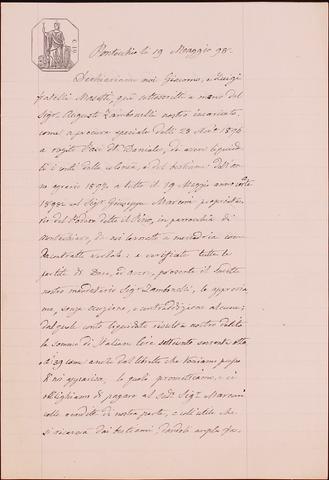 Pontecchio li 19 Maggio 98.
Dichiariamo noi Giacomo, e Luigi
fratelli Masetti, qui sottoscritti a mezzo del
Sigr. Augusto Zambonelli nostro incaricato,
come a procura speciale delli 23 1896
a rogito Dr. Daniele, di aver liquida-
ti i conti della colonia, e del bestiame dell'an-
no agrario 1897. a tutto il 19 Maggio anno corte
1898. col Sigr. Giuseppe Marconi proprieta-
rio del Podere detto il Pino, in parrocchia di
Pontecchio, da noi lavorato a mezzadria con
contratto verbale; e verificate tutte le
partite di Dare, ed avere, presente il
nostro mandatario Sigr. Zambonelli, le approvia-
mo, senza eccezione, e contraddizione alcuna;
dal quale conto liquidato risulta a nostro debito
la somma di Italiane Lire settecento
e come anche dal libretto che teniamo presso
di noi apparisce, la quale promettiamo, e ci
obblighiamo di pagare al sudd. Sigr. Marconi
colle rendite di nostra parte, e coll'utile che
si ricaverà dai bestiami, dandoli ampla fa-